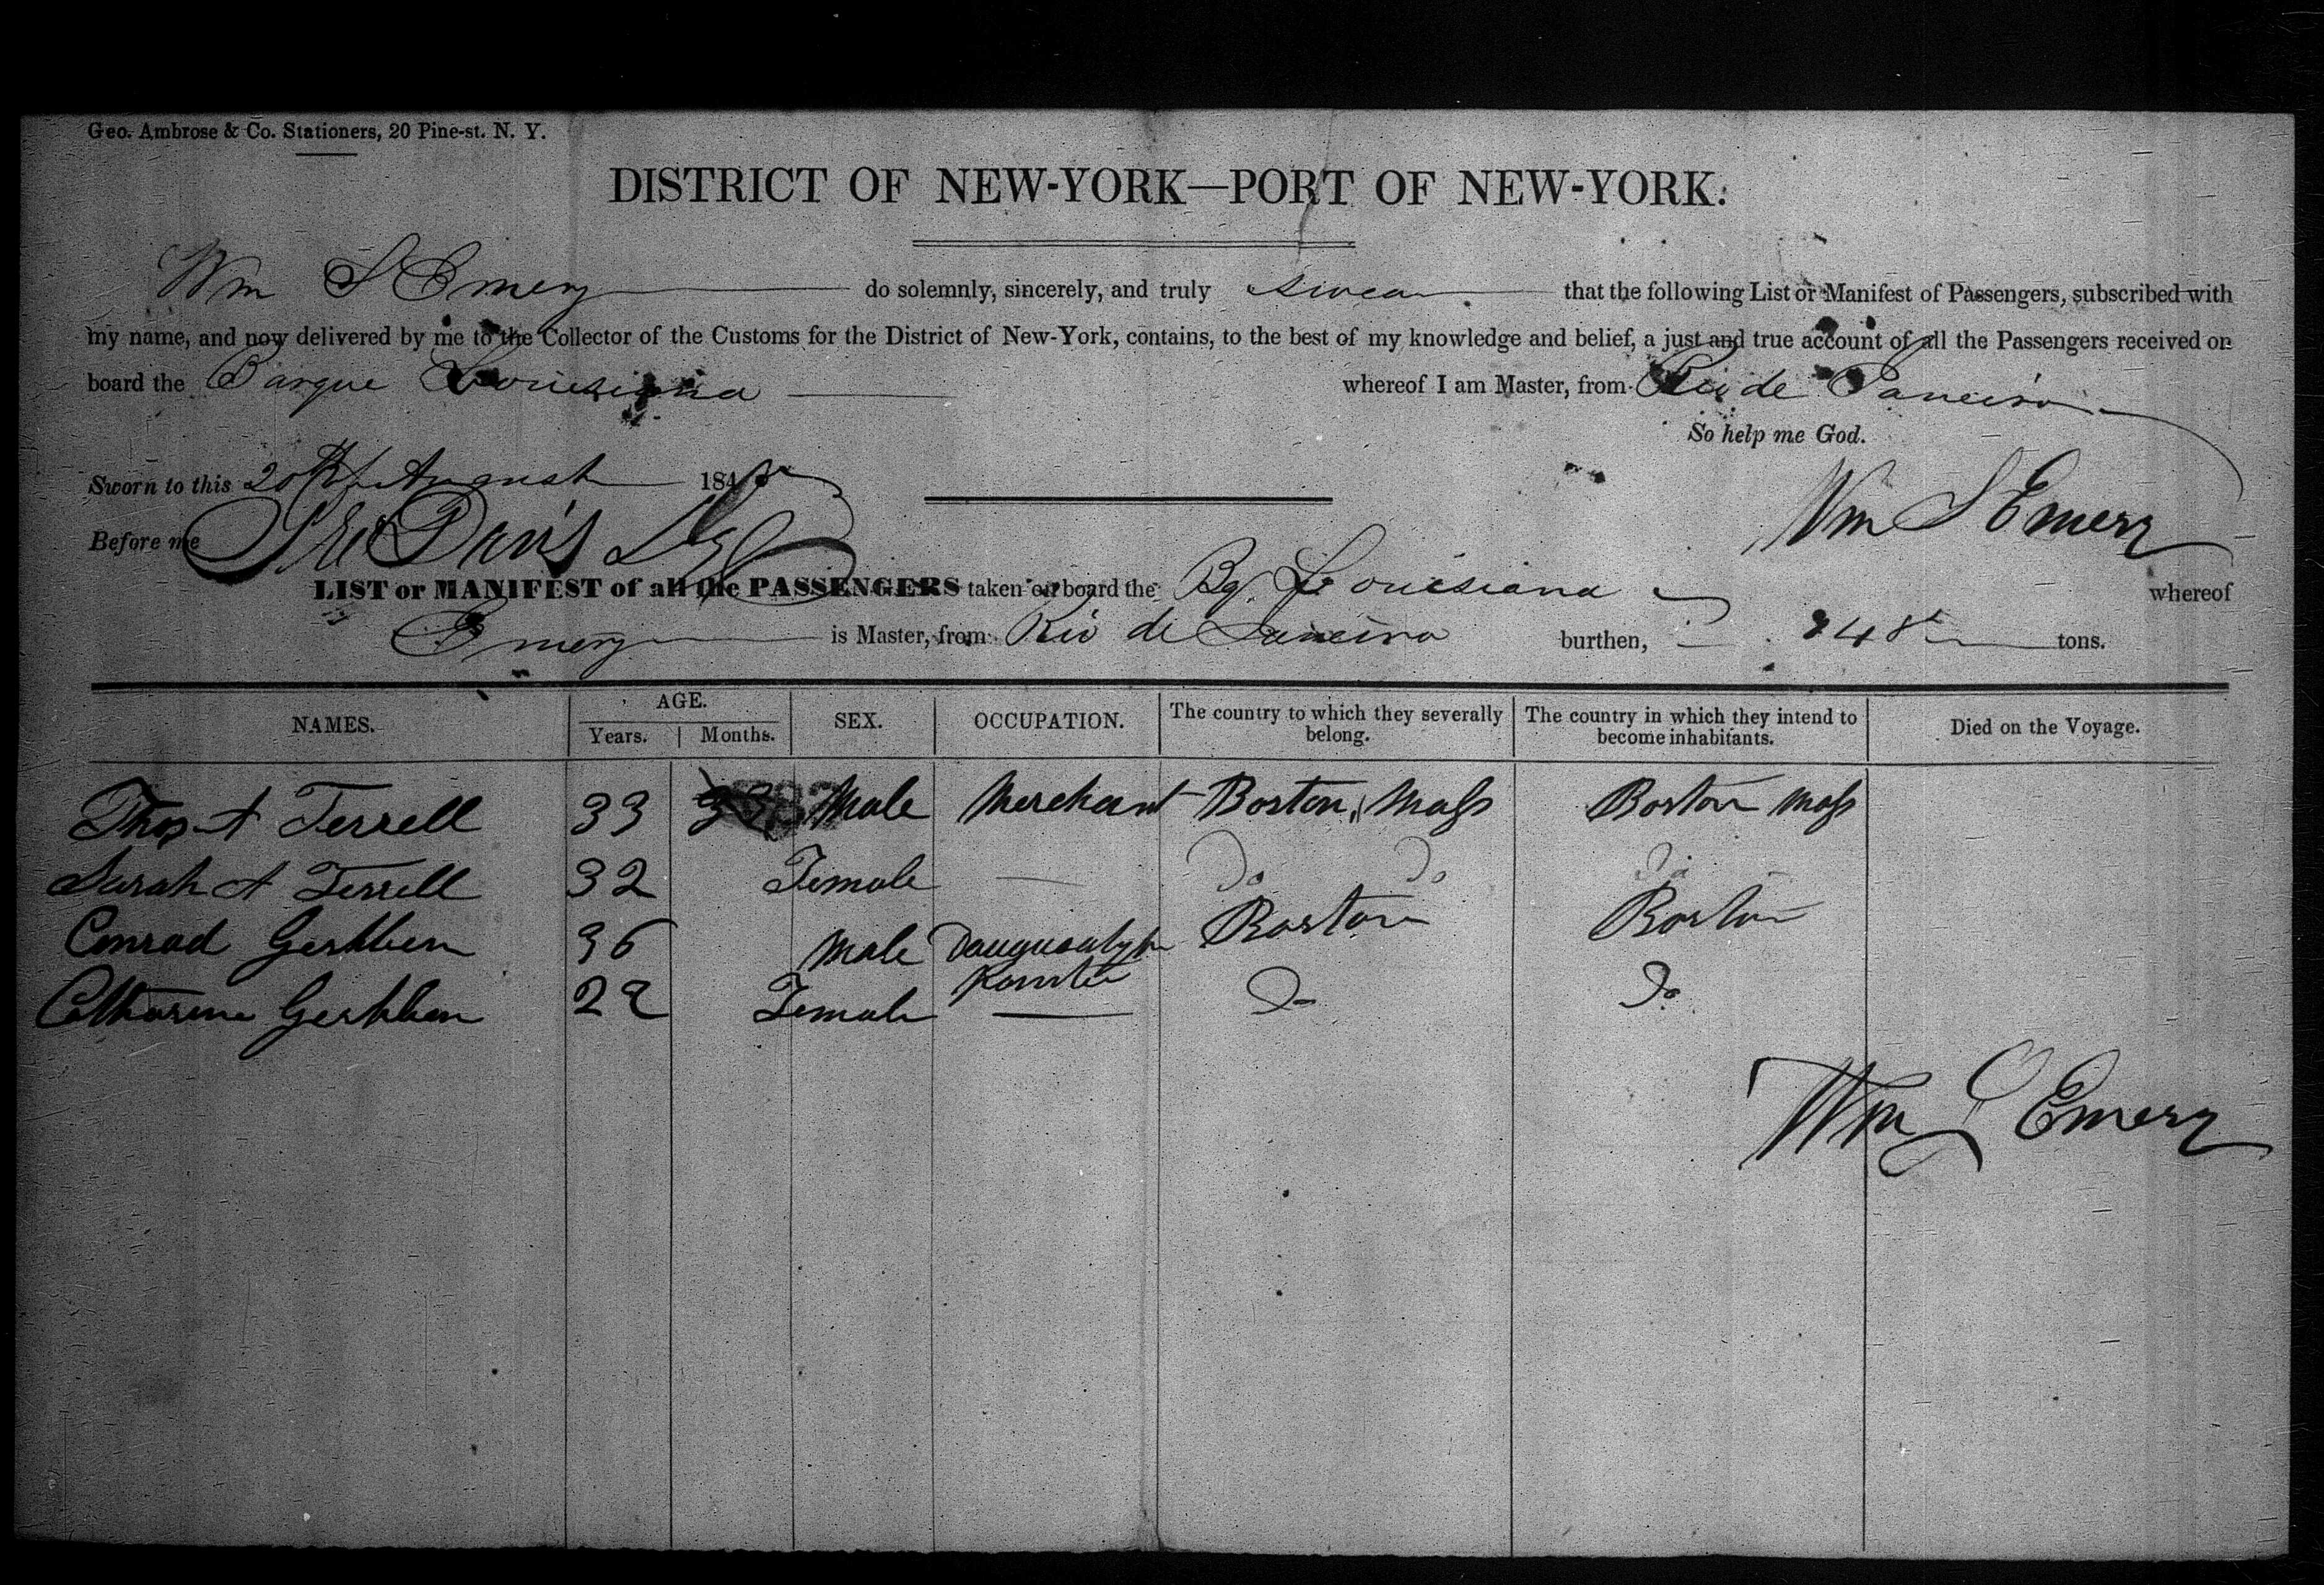 Geo. Ambrose & Co. Stationers, 20 Pine-st. N. Y.
DISTRICT OF NEW-YORK—PORT OF NEW-YORK:
Wm S Emery do solemnly, sincerely, and truly swear that the following List or Manifest of Passengers, subscribed with
my name, and now delivered by me to the Collector of the Customs for the District of New-York, contains, to the best of my knowledge and belief, a just and true account of all the Passengers received on
board the Barque Louisiana whereof I am Master, from Rio de Janeiro
So help me God.
Sworn to this 20th August 184
Wm S Emery
Before me Davis
LIST or MANIFEST of all the PASSENGERS taken on board the Bq. Louisiana whereof
Emery is Master, from Rio de Janeiro burthen, 248 tons.
NAMES. AGE. Years. Months. SEX. OCCUPATION. The country to which they severally belong. The country in which they intend to become inhabitants. Died on the Voyage.
Thos A Terrell 33 Male Merchant Boston, Mass Boston Mass
Sarah A Terrell 32 Female — Do Do Do
Conrad 36 Male Boston Boston
Catharine 22 Female — Do Do
Wm S Emery